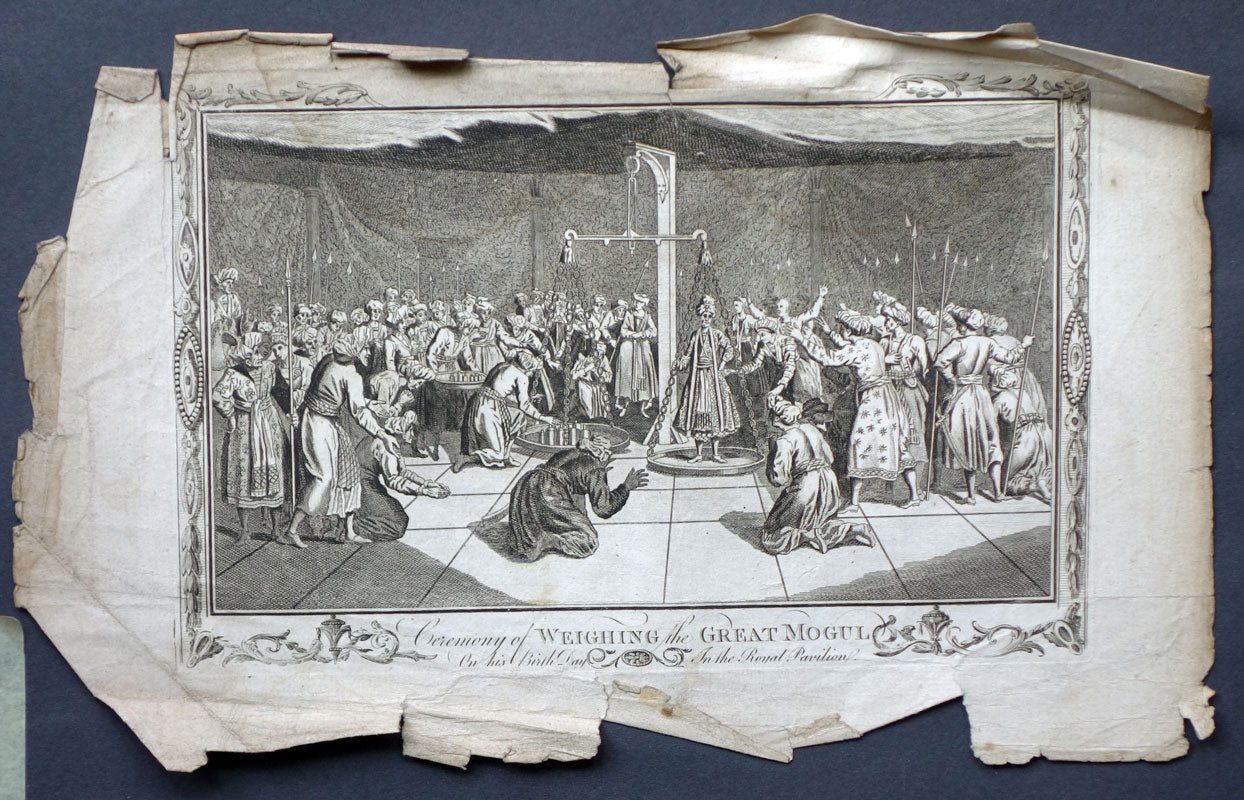 Ceremony of WEIGHING the GREAT MOGUL
On his Birth Day In the Royal Pavilion.